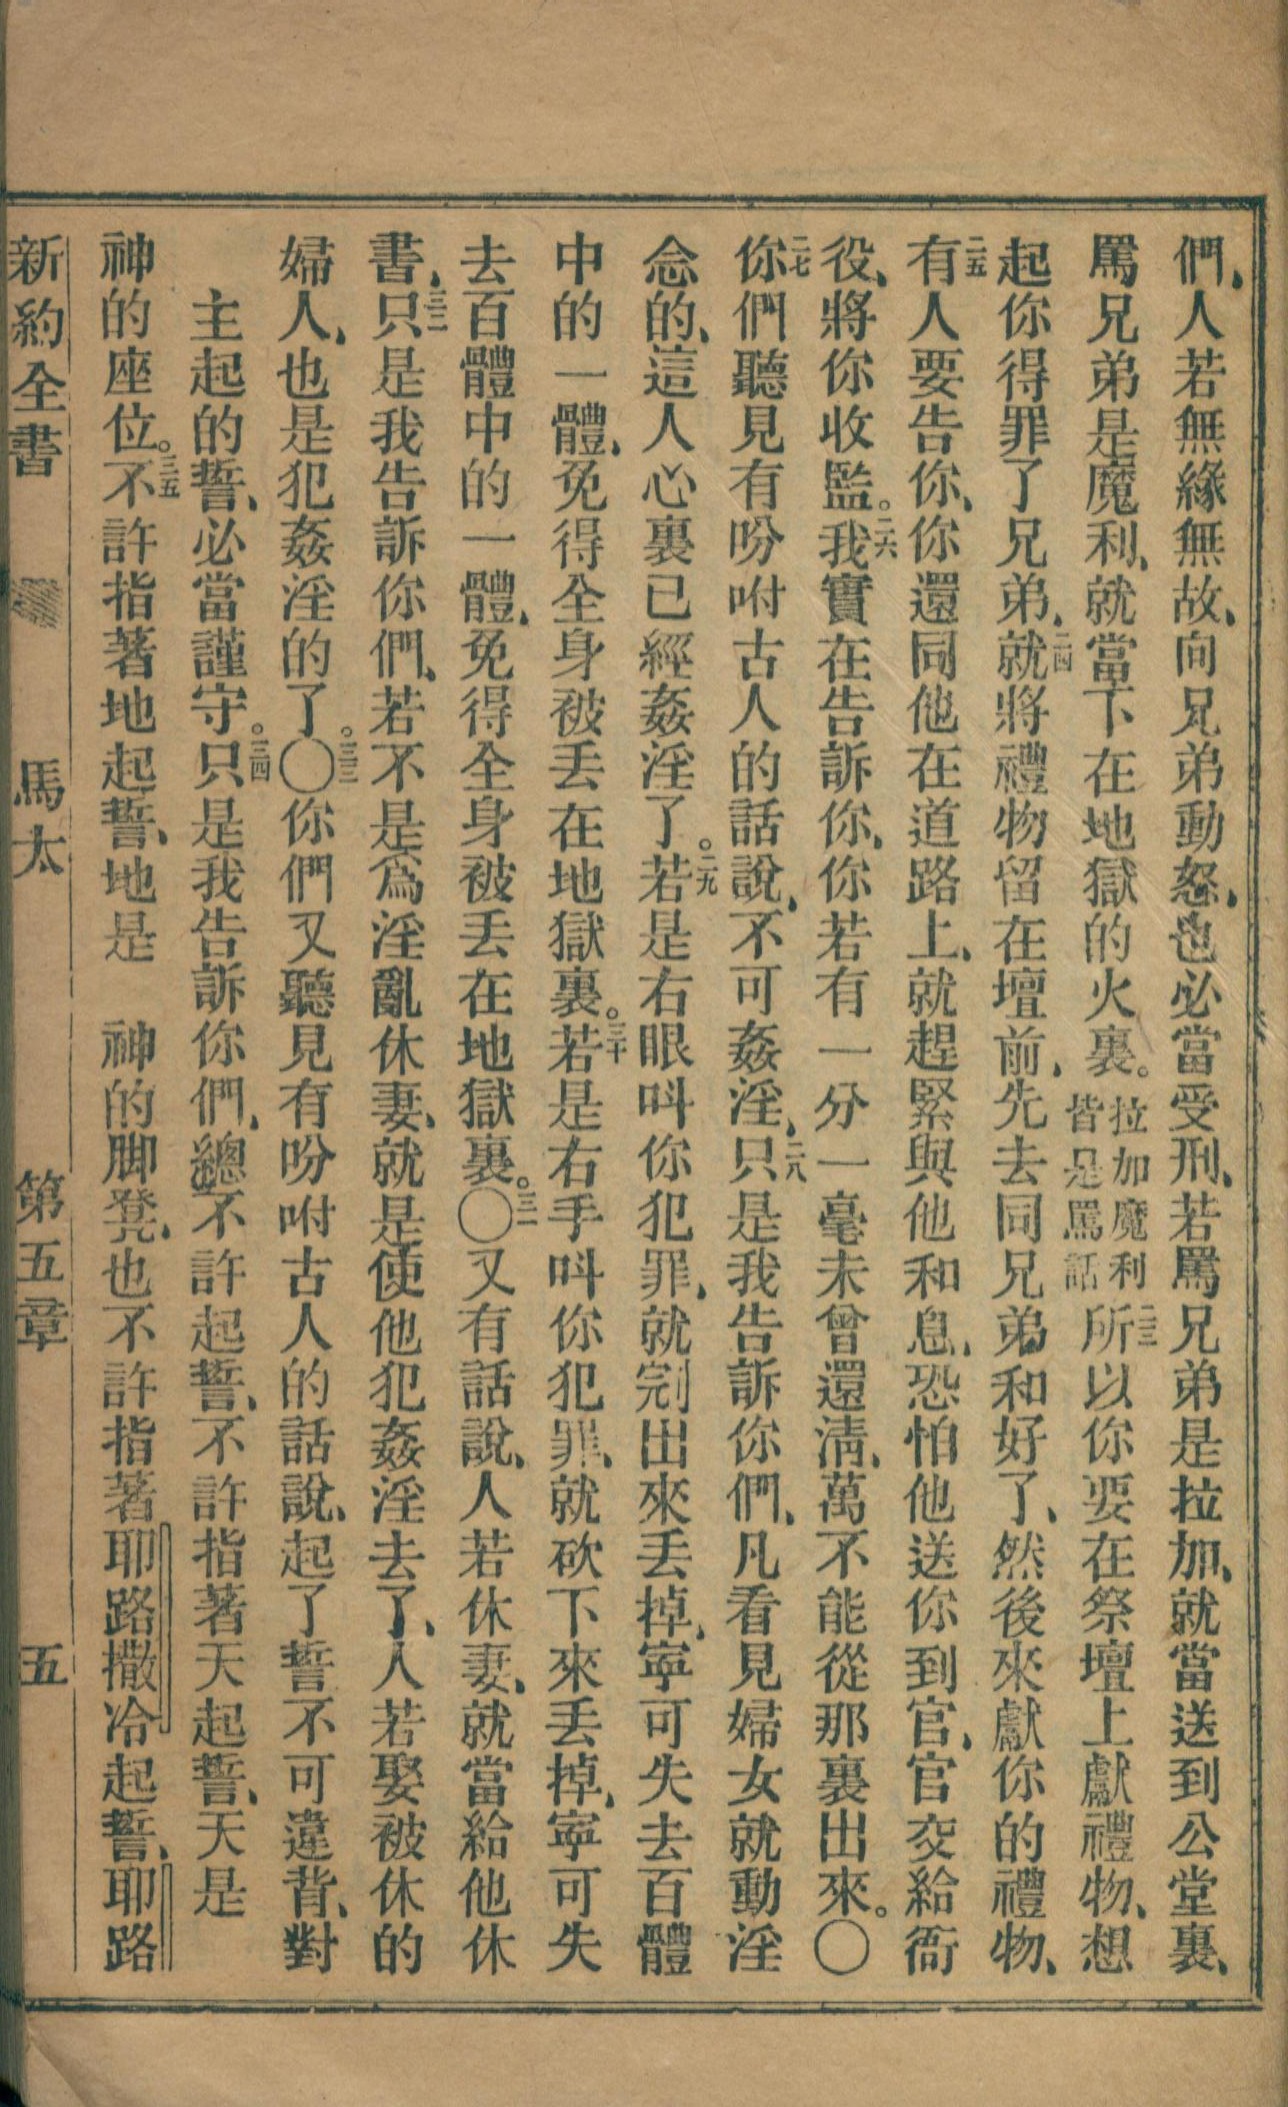 們、人若無緣無故、向兄弟動怒、也必當受刑、若罵兄弟是拉加、就當送到公堂裏、
罵兄弟是魔利、就當下在地獄的火裏。拉加魔利皆是罵話二三所以你要在祭壇上獻禮物、想
起你得罪了兄弟、二四就將禮物留在壇前、先去同兄弟和好了、然後來獻你的禮物、
二五有人要告你、你還同他在道路上、就趕緊與他和息、恐怕他送你到官、官交給衙
役、將你收監。二六我實在告訴你、你若有一分一毫未曾還清、萬不能從那裏出來。〇
二七你們聽見有吩咐古人的話說、不可姦淫、二八只是我告訴你們、凡看見婦女就動淫
念的、這人心裏已經姦淫了。二九若是右眼呌你犯罪、就剜出來丟掉、寧可失去百體
中的一體、免得全身被丟在地獄裏。三十若是右手呌你犯罪、就砍下來丟掉、寧可失
去百體中的一體、免得全身被丟在地獄裏。〇三一又有話說、人若休妻、就當給他休
書、三二只是我告訴你們、若不是爲淫亂休妻、就是使他犯姦淫去了、人若娶被休的
婦人、也是犯姦淫的了。〇三三你們又聽見有吩咐古人的話說、起了誓不可違背、對
主起的誓、必當謹守。三四只是我告訴你們、總不許起誓、不許指著天起誓、天是
神的座位。三五不許指著地起誓、地是　神的脚凳、也不許指著耶路撒冷起誓、耶路
新約全書　馬太　第五章　五